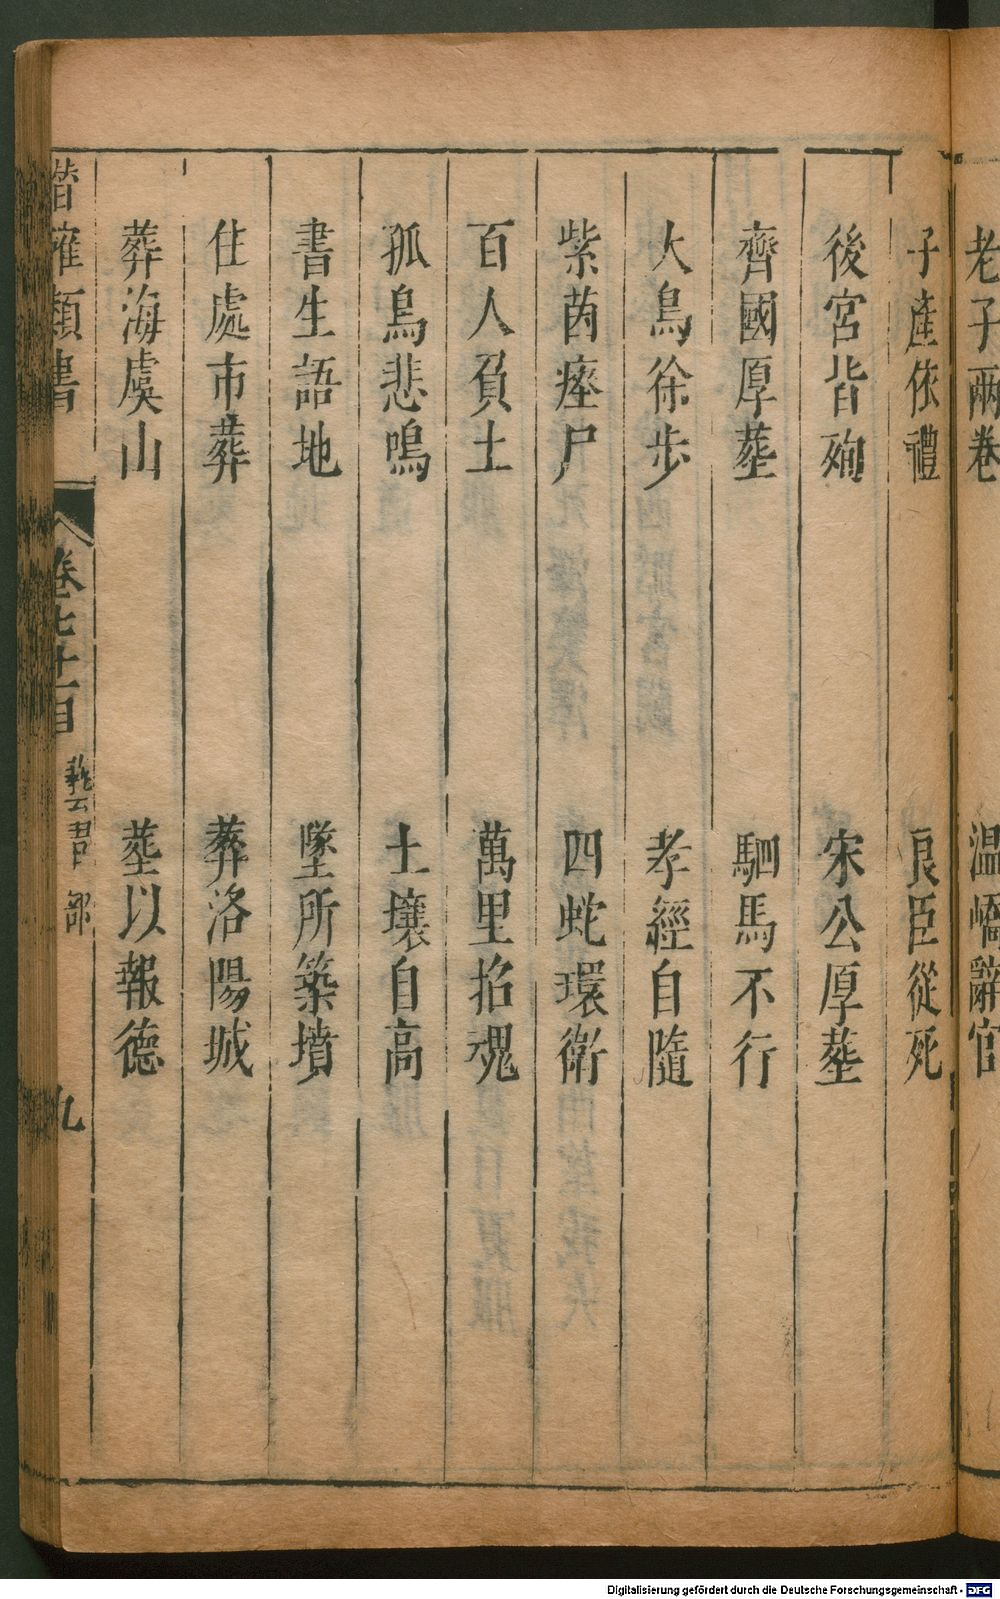 老子兩卷 温嶠辭官
子產依禮 良臣從死
後宮皆殉 宋公厚塟
齊國厚塟 駟馬不行
大鳥徐步 孝經自隨
紫茵瘞尸 四蛇環衛
百人負土 萬里招魂
孤鳥悲鳴 土壤自高
書生語地 墜所築墳
住處市葬 葬洛陽城
葬海虞山 塟以報德
類書 卷七十一目 部 九
Digitalisierung gefördert durch die Deutsche Forschungsgemeinschaft - DFG